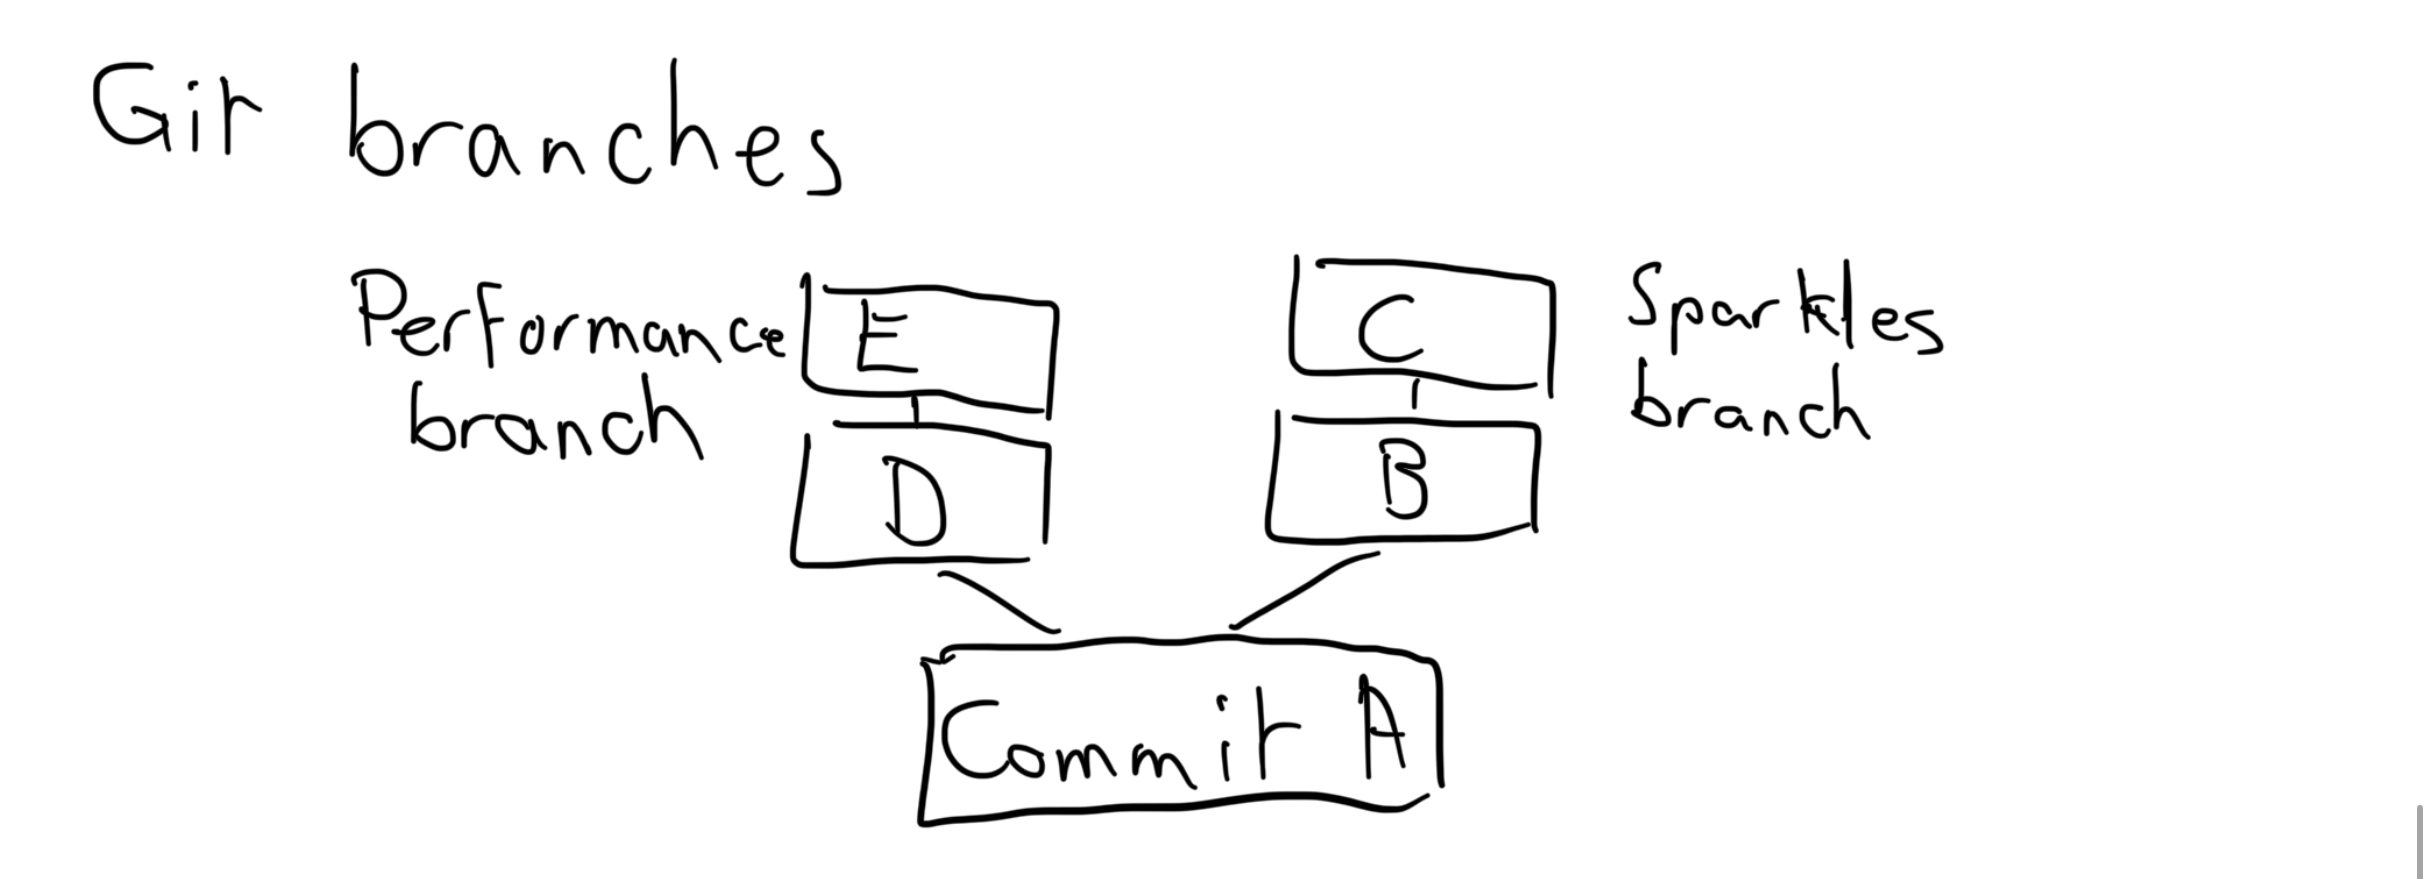 Git branches
Performance
branch
E
C
Sparkles
branch
D
B
Commit A